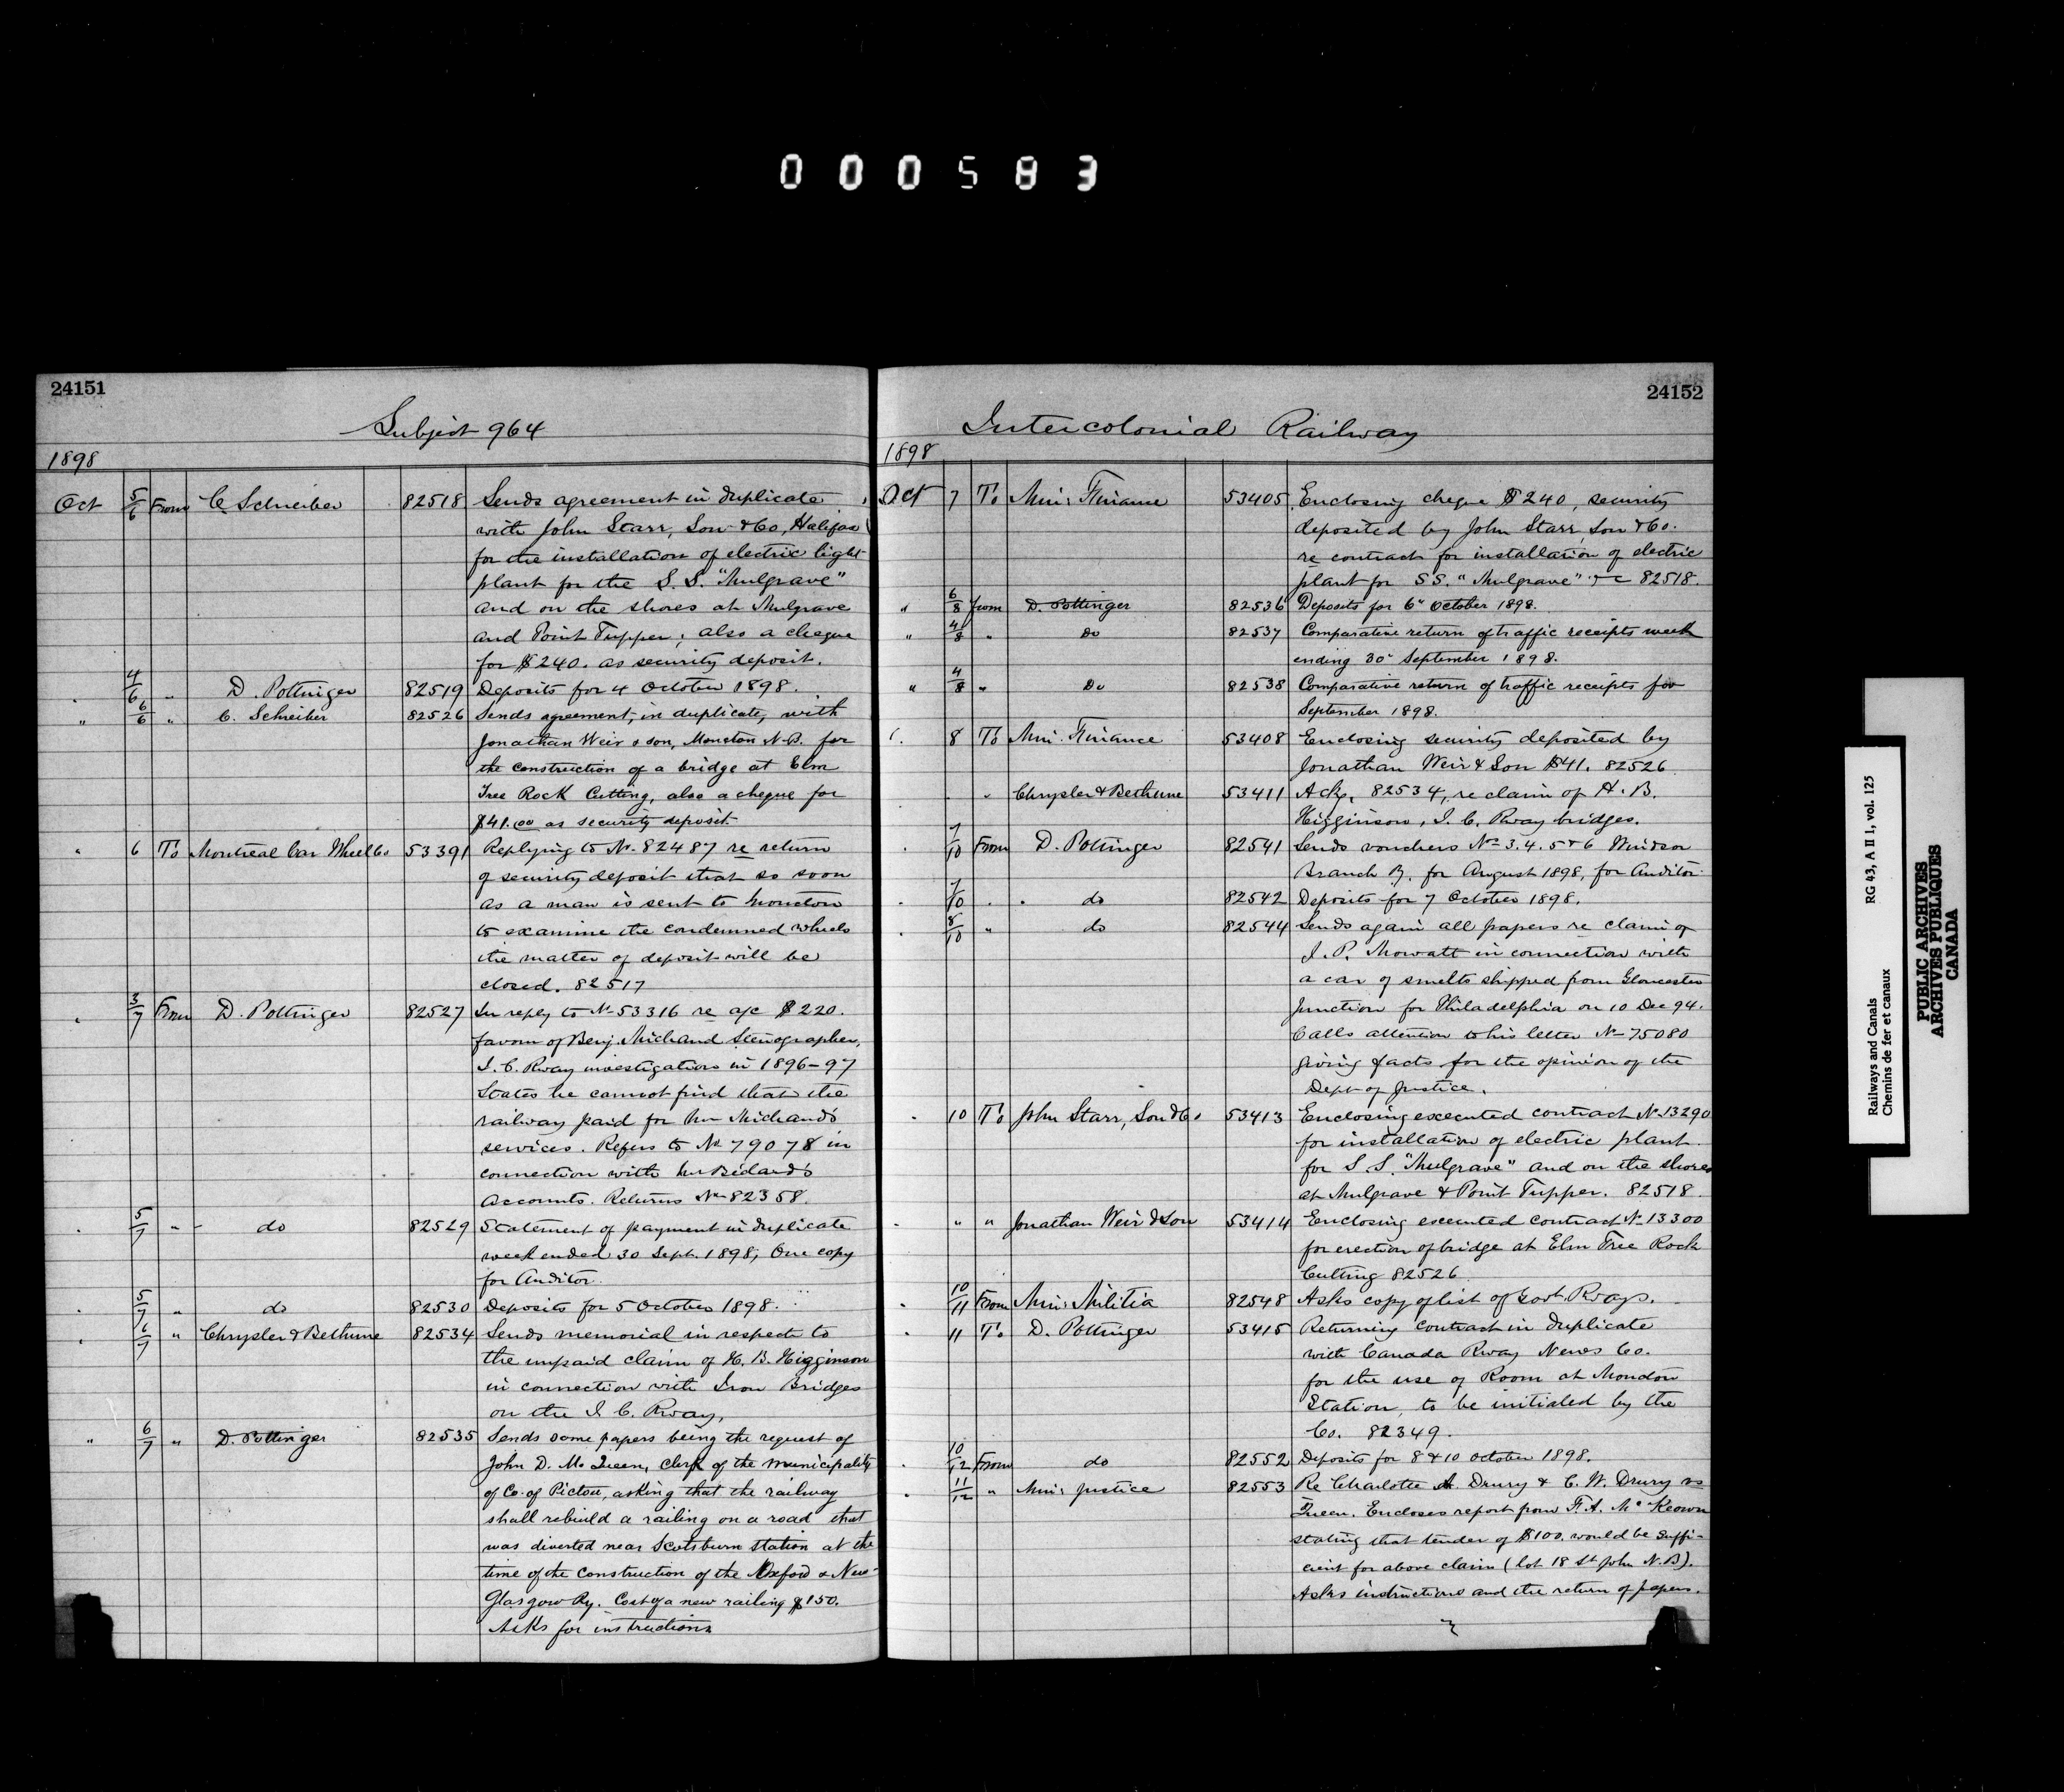 000583
24151
Subject 964
1898
Oct 5/6 From C Schreiber 82518 Sends agreement in duplicate
with John Starr, Son & Co, Halifax
for the installation of electric light
plant for the S. S. "Mulgrave"
and on the shores at Mulgrave
and Point Tupper; also a cheque
for $240. as security deposit.
" 4/6 " D. Pottinger 82519 Deposits for 4 October 1898.
" 6/6 " C. Schreiber 82526 Sends agreement, in duplicate, with
Jonathan Weir & son, Moncton N.B. for
the construction of a bridge at Elm
Tree Rock Cutting, also a cheque for
$41.00 as security deposit.
" 6 To Montreal Car Wheel Co 53391 Replying to No. 82487 re return
of security deposit that so soon
as a man is sent to Moncton
to examine the condemned wheels
the matter of deposit will be
closed. 82517
" 3/7 From D. Pottinger 82527 In reply to No 53316 re a/c $220.
favour of Benj. Michaud Stenographer,
I. C. Rway investigations in 1896-97
States he cannot find that the
railway paid for Mr Michaud's
services. Refers to No 79078 in
connection with Mr Bedard's
Accounts. Returns No 82358.
" 5/7 " do 82529 Statement of payment in duplicate
week ended 30 Sept. 1898, One copy
for Auditor.
" 5/7 " do 82530 Deposits for 5 October 1898.
" 6/7 " Chrysler & Bethune 82534 Sends memorial in respect to
the unpaid claim of H. B. Higginson
in connection with Iron Bridges
on the I. C. Rway,
" 6/7 " D. Pottinger 82535 Sends some papers being the request of
John D. McQueen, Clerk of the municipality
of Co. of Pictou, asking that the railway
shall rebuild a railing on a road that
was diverted near Scotsburn Station at the
time of the construction of the Oxford & New
Glasgow Ry. Cost of a new railing $150.
Asks for instructions
24152
Intercolonial Railway
1898
Oct 7 To Min: Finance 53405 Enclosing cheque $240, security
deposited by John Starr, Son & Co.
re contract for installation of electric
plant for SS. "Mulgrave" &c 82518.
" 6/8 from D. Pottinger 82536 Deposits for 6" October 1898.
" 4/8 " Do 82537 Comparative return of traffic receipts week
ending 30" September 1898.
" 4/8 " Do 82538 Comparative return of traffic receipts for
September 1898.
" 8 To Min. Finance 53408 Enclosing security deposited by
Jonathan Weir & Son $41. 82526
" " Chrysler & Bethune 53411 Ackg. 82534, re claim of H. B.
Higginson, I. C. Rway bridges.
" 7/10 From D. Pottinger 82541 Sends vouchers Nos 3.4.5 & 6 Windsor
Branch Ry. for August 1898, for Auditor
" 7/10 " do 82542 Deposits for 7 October 1898.
" 8/10 " do 82544 Sends again all papers re claim of
J. P. Mowatt in connection with
a car of smelts shipped from Gloucester
Junction for Philadelphia on 10 Dec 94.
Calls attention to his letter No 75080
giving facts for the opinion of the
Dept of Justice.
" 10 To John Starr, Son & Co 53413 Enclosing executed contract No 13290
for installation of electric plant
for S. S. "Mulgrave" and on the shores
at Mulgrave & Point Tupper. 82518.
" " " Jonathan Weir & Son 53414 Enclosing executed contract No 13300
for erection of bridge at Elm Tree Rock
Cutting 82526
" 10/11 From Min: Militia 82548 Asks copy of list of Govt. Rways.
" 11 To D. Pottinger 53415 Returning contract in duplicate
with Canada Rway News Co.
for the use of Room at Moncton
Station, to be initialed by the
Co. 82349.
" 10/12 From do 82552 Deposits for 8 & 10 October 1898.
" 11/12 " Min: Justice 82553 Re Charlotte A. Drury & C. W. Drury vs
Queen. Encloses report from F. A. McKeown
stating that tender of $100. would be suffi-
cient for above claim (lot 18 St John N.B).
Asks instructions and the return of papers.
RG 43, A II 1, vol. 125
Railways and Canals
Chemins de fer et canaux
PUBLIC ARCHIVES
ARCHIVES PUBLIQUES
CANADA